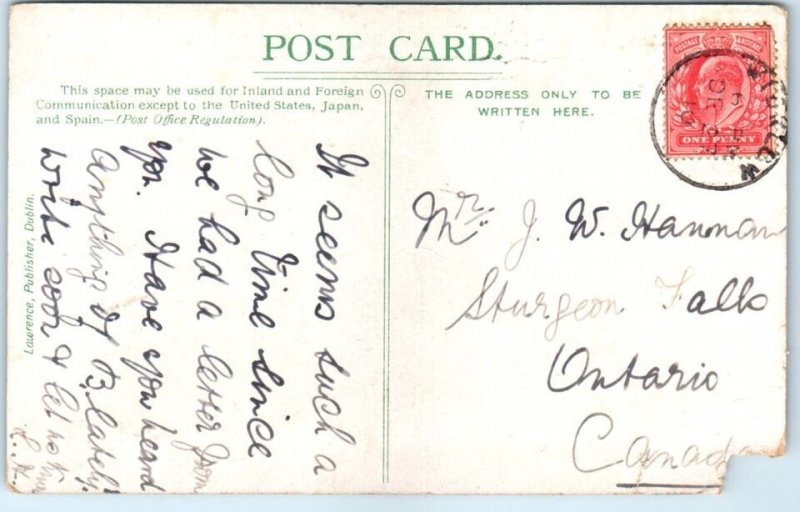 POST CARD.
This space may be used for Inland and Foreign
Communication except to the United States, Japan,
and Spain.—(Post Office Regulation).
THE ADDRESS ONLY TO BE
WRITTEN HERE.
POSTAGE & REVENUE
ONE PENNY
It seems such a
long time since
we had a letter from
you. Have you heard
anything of B. lately.
Write soon & let
L. H.
Mr. J. W. Hannan
Sturgeon Falls
Ontario
Canada
Lawrence, Publisher, Dublin.